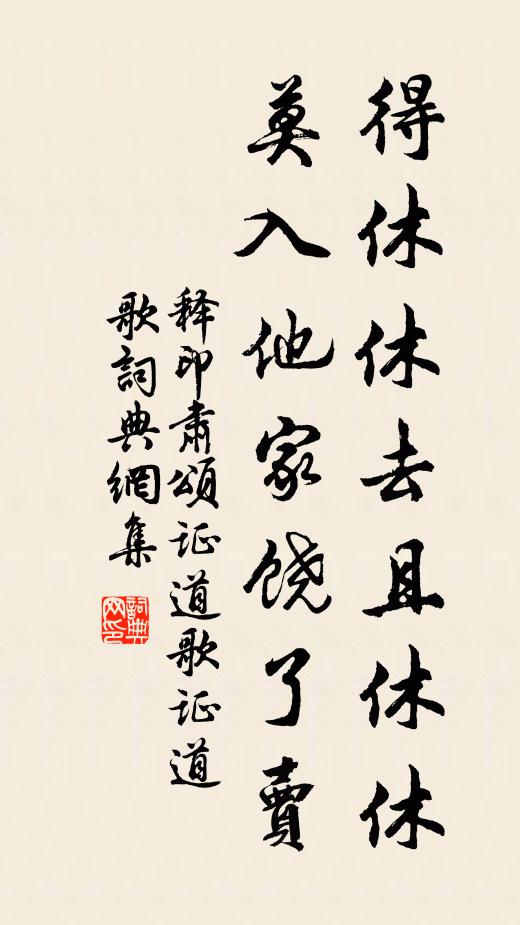 得休休去且休休
莫入他家饶了賣
释印肃頌证道歌证道
歌詞典網集
詞典
网印